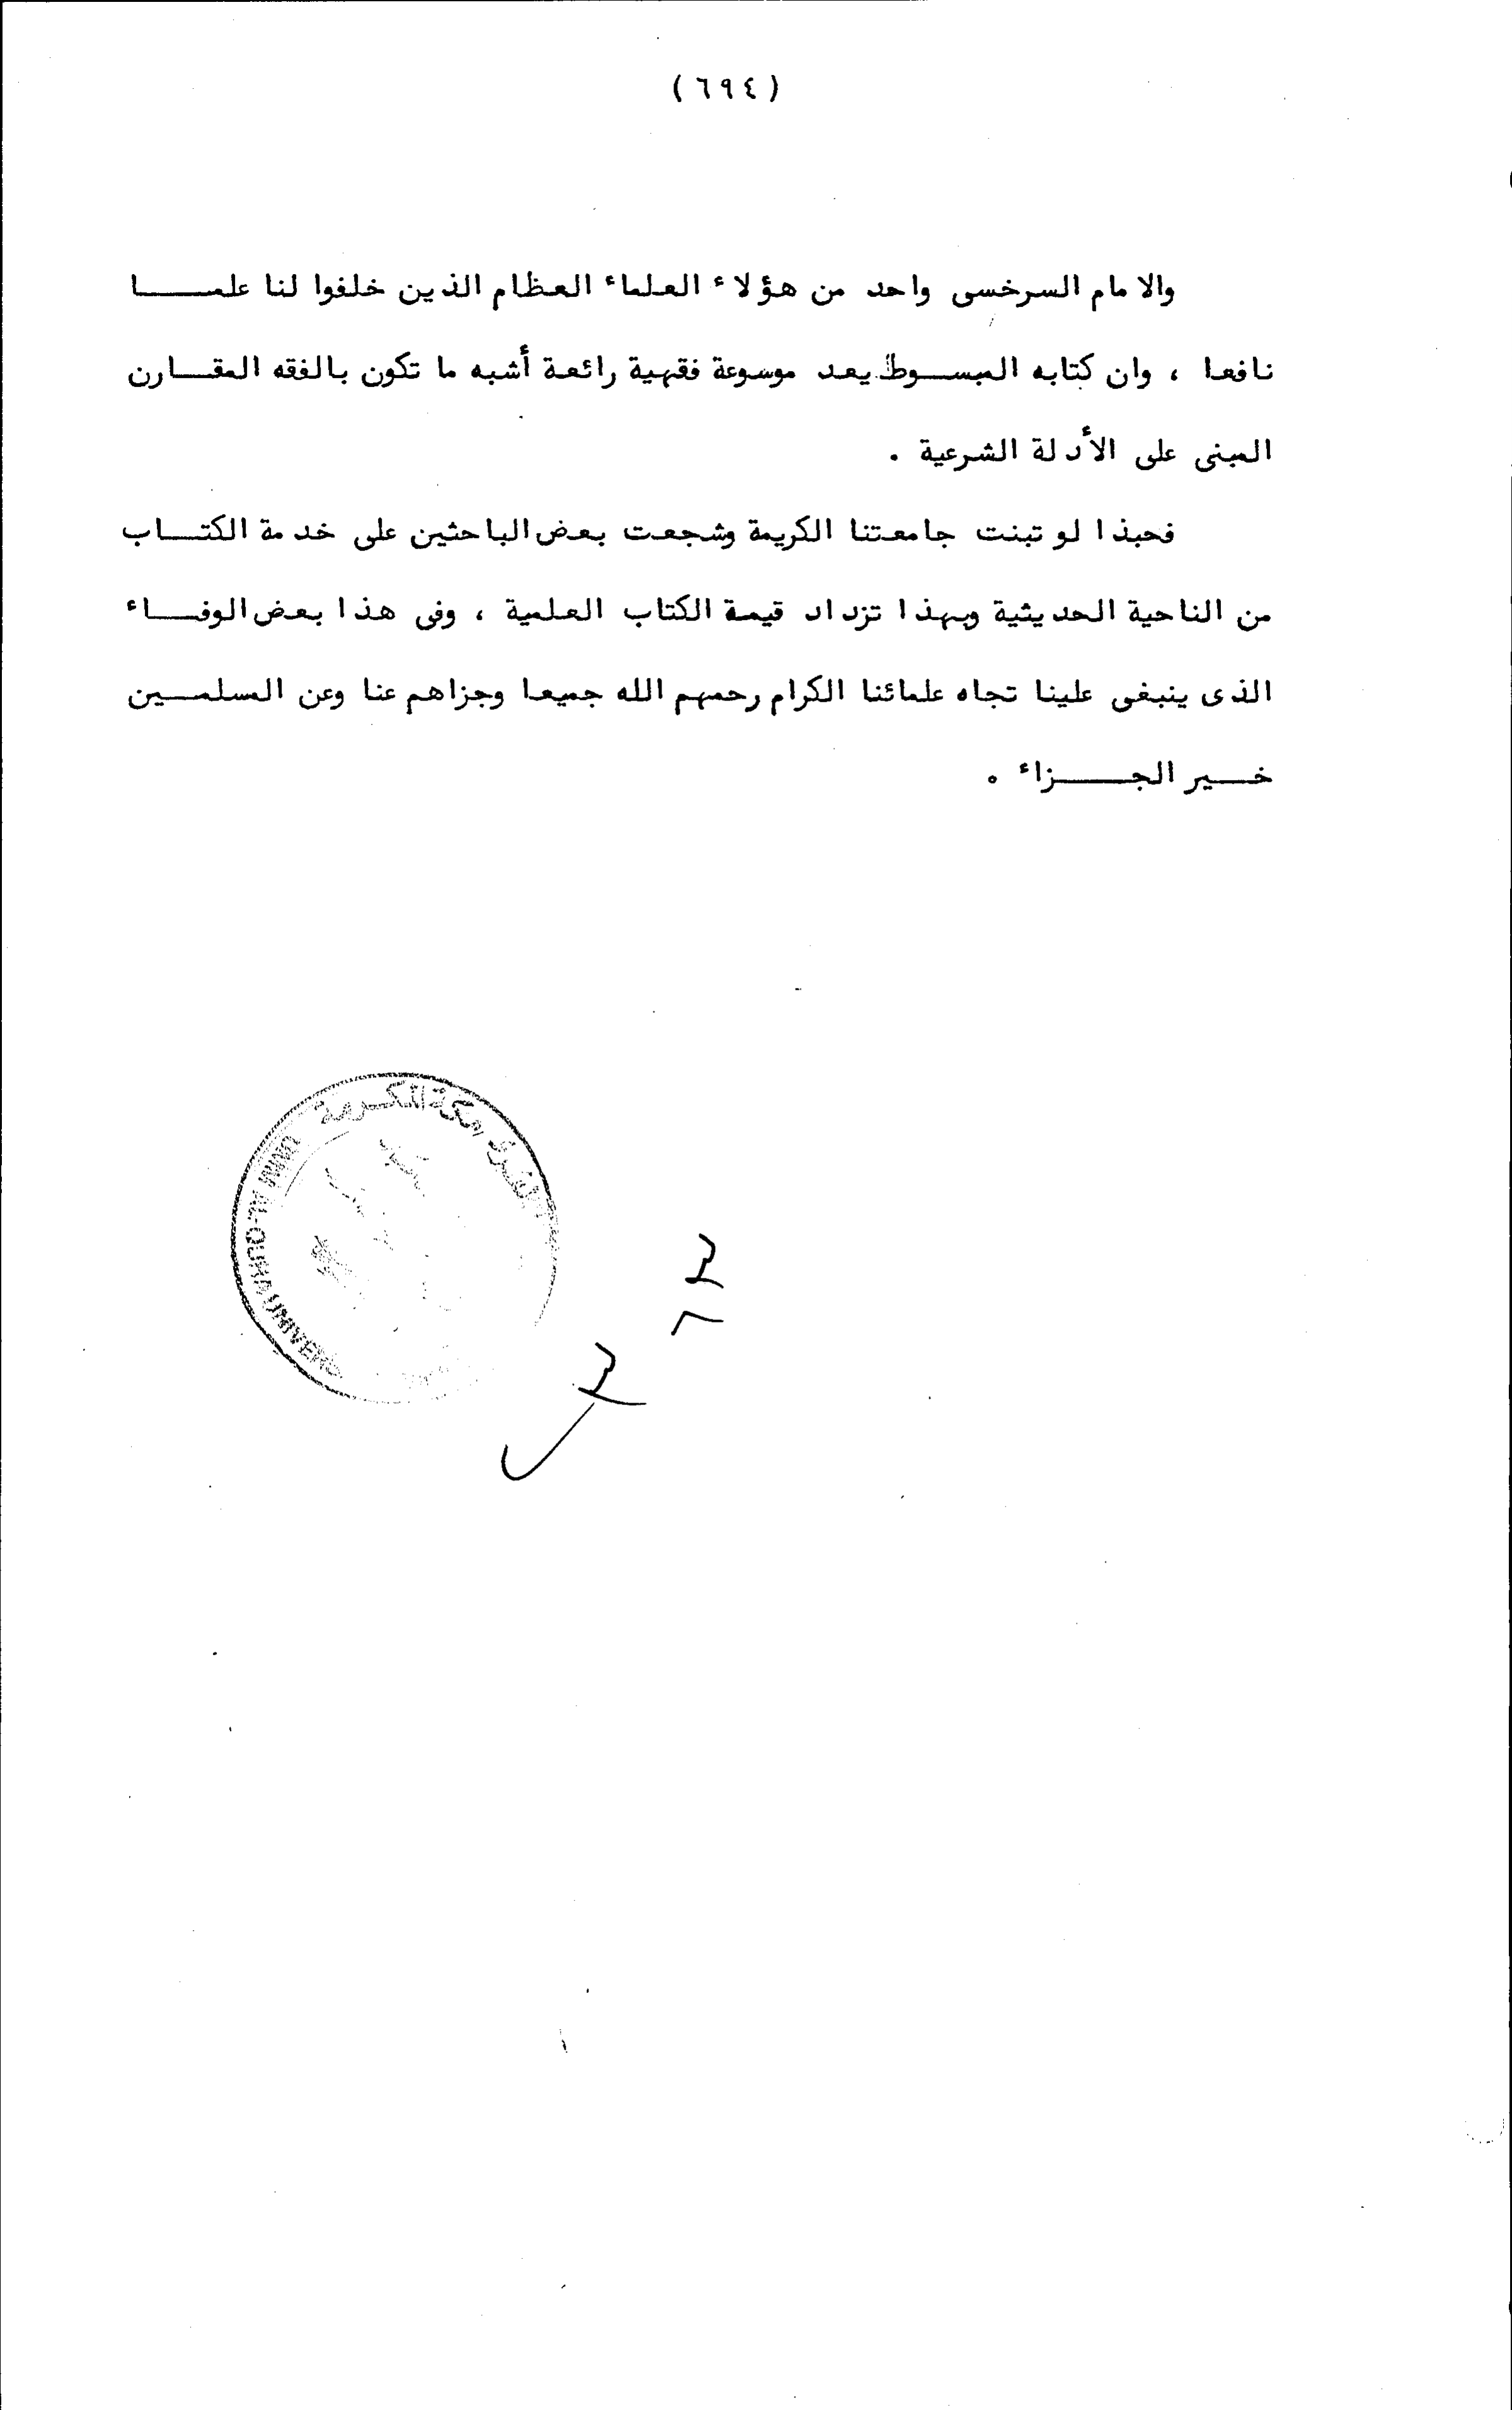 (٦٩٤)
والامام السرخسى واحد من هؤلاء العلماء العظام الذين خلفوا لنا علمــــا
نافعا ، وان كتابه المبســوط يعد موسوعة فقهية رائعة أشبه ما تكون بالفقه المقــارن
المبنى على الأدلة الشرعية .
فحبذا لو تبنت جامعتنا الكريمة وشجعت بعض الباحثين على خدمة الكتــاب
من الناحية الحديثية وبهذا تزداد قيمة الكتاب العلمية ، وفى هذا بعض الوفــاء
الذى ينبغى علينا تجاه علمائنا الكرام رحمهم الله جميعا وجزاهم عنا وعن المسلمــين
خــير الجــــزاء .
القرى مكة المكرمة
UMM AL-QURA